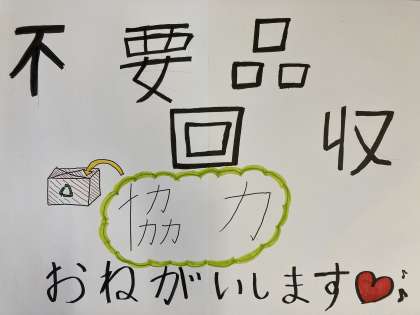 不要品
回収
協力
おねがいします